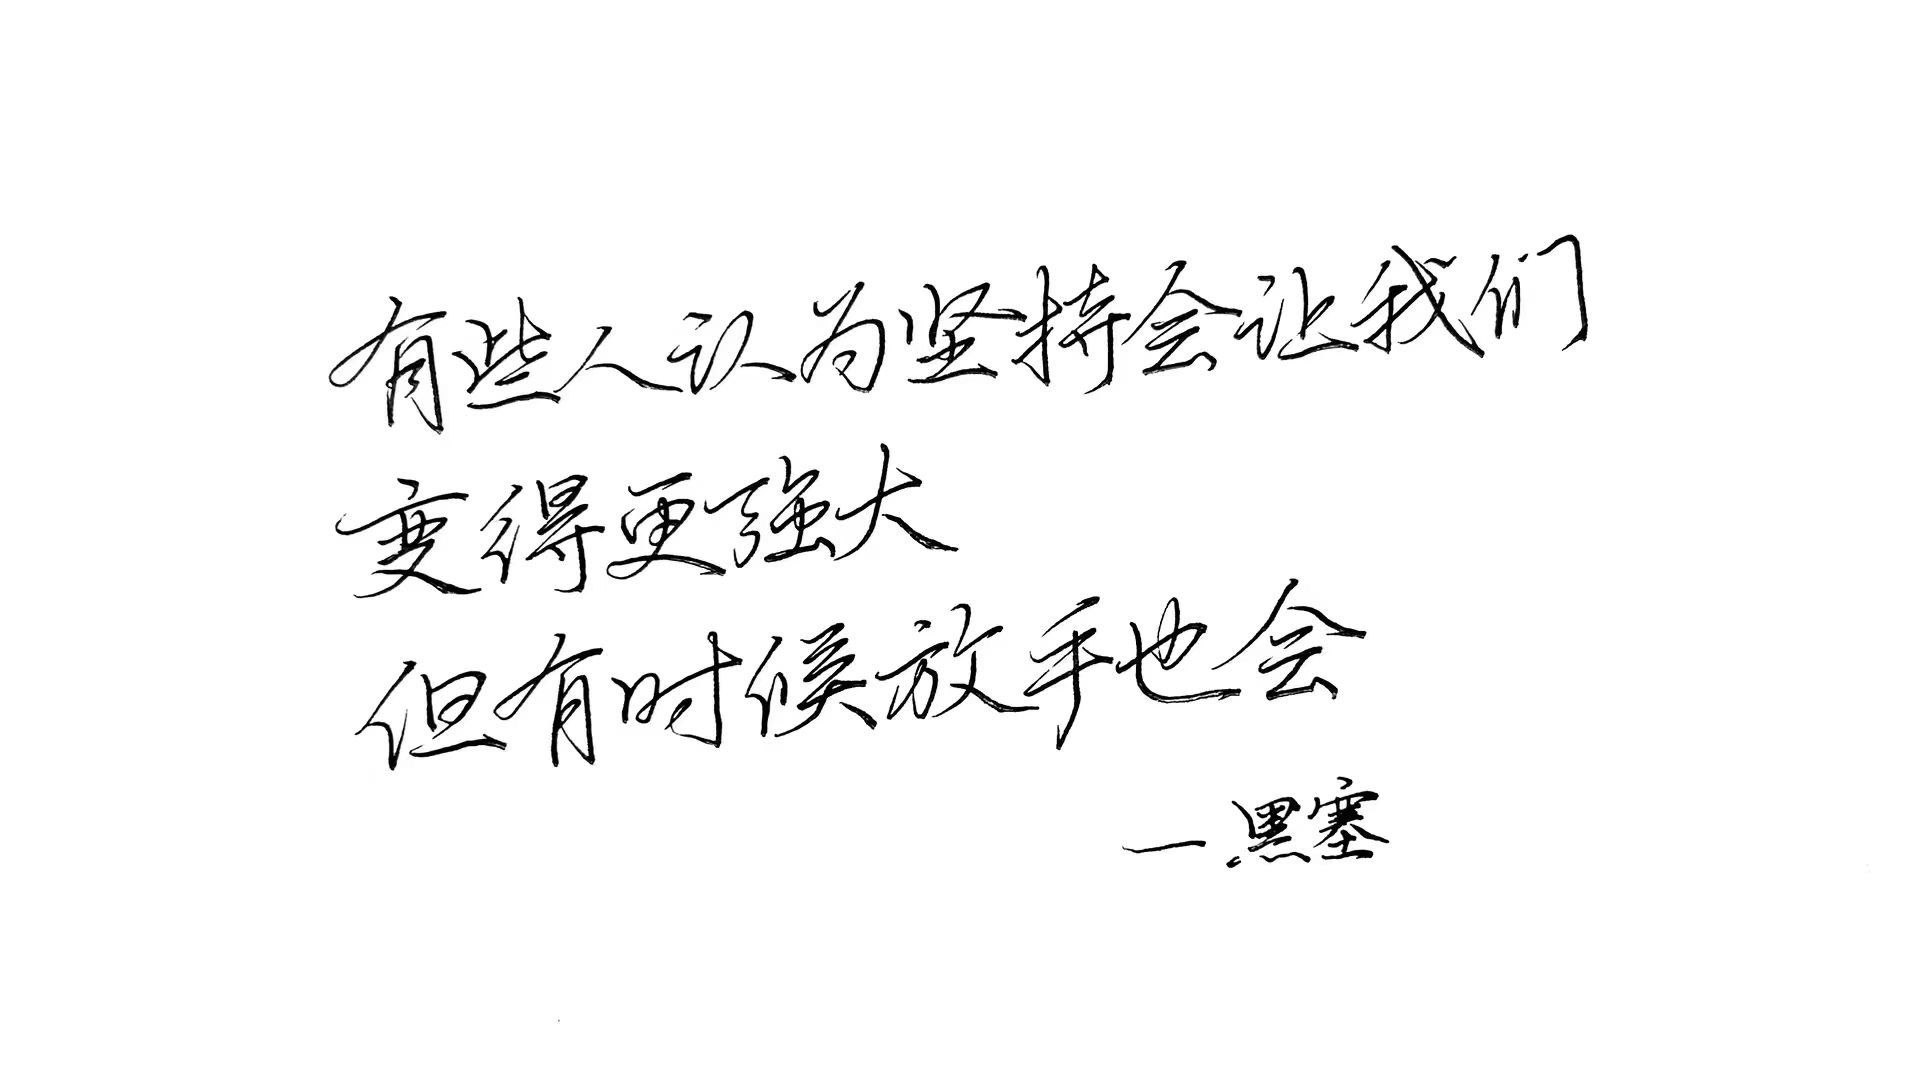 有些人认为坚持会让我们
变得更强大
但有时候放手也会
—黑塞